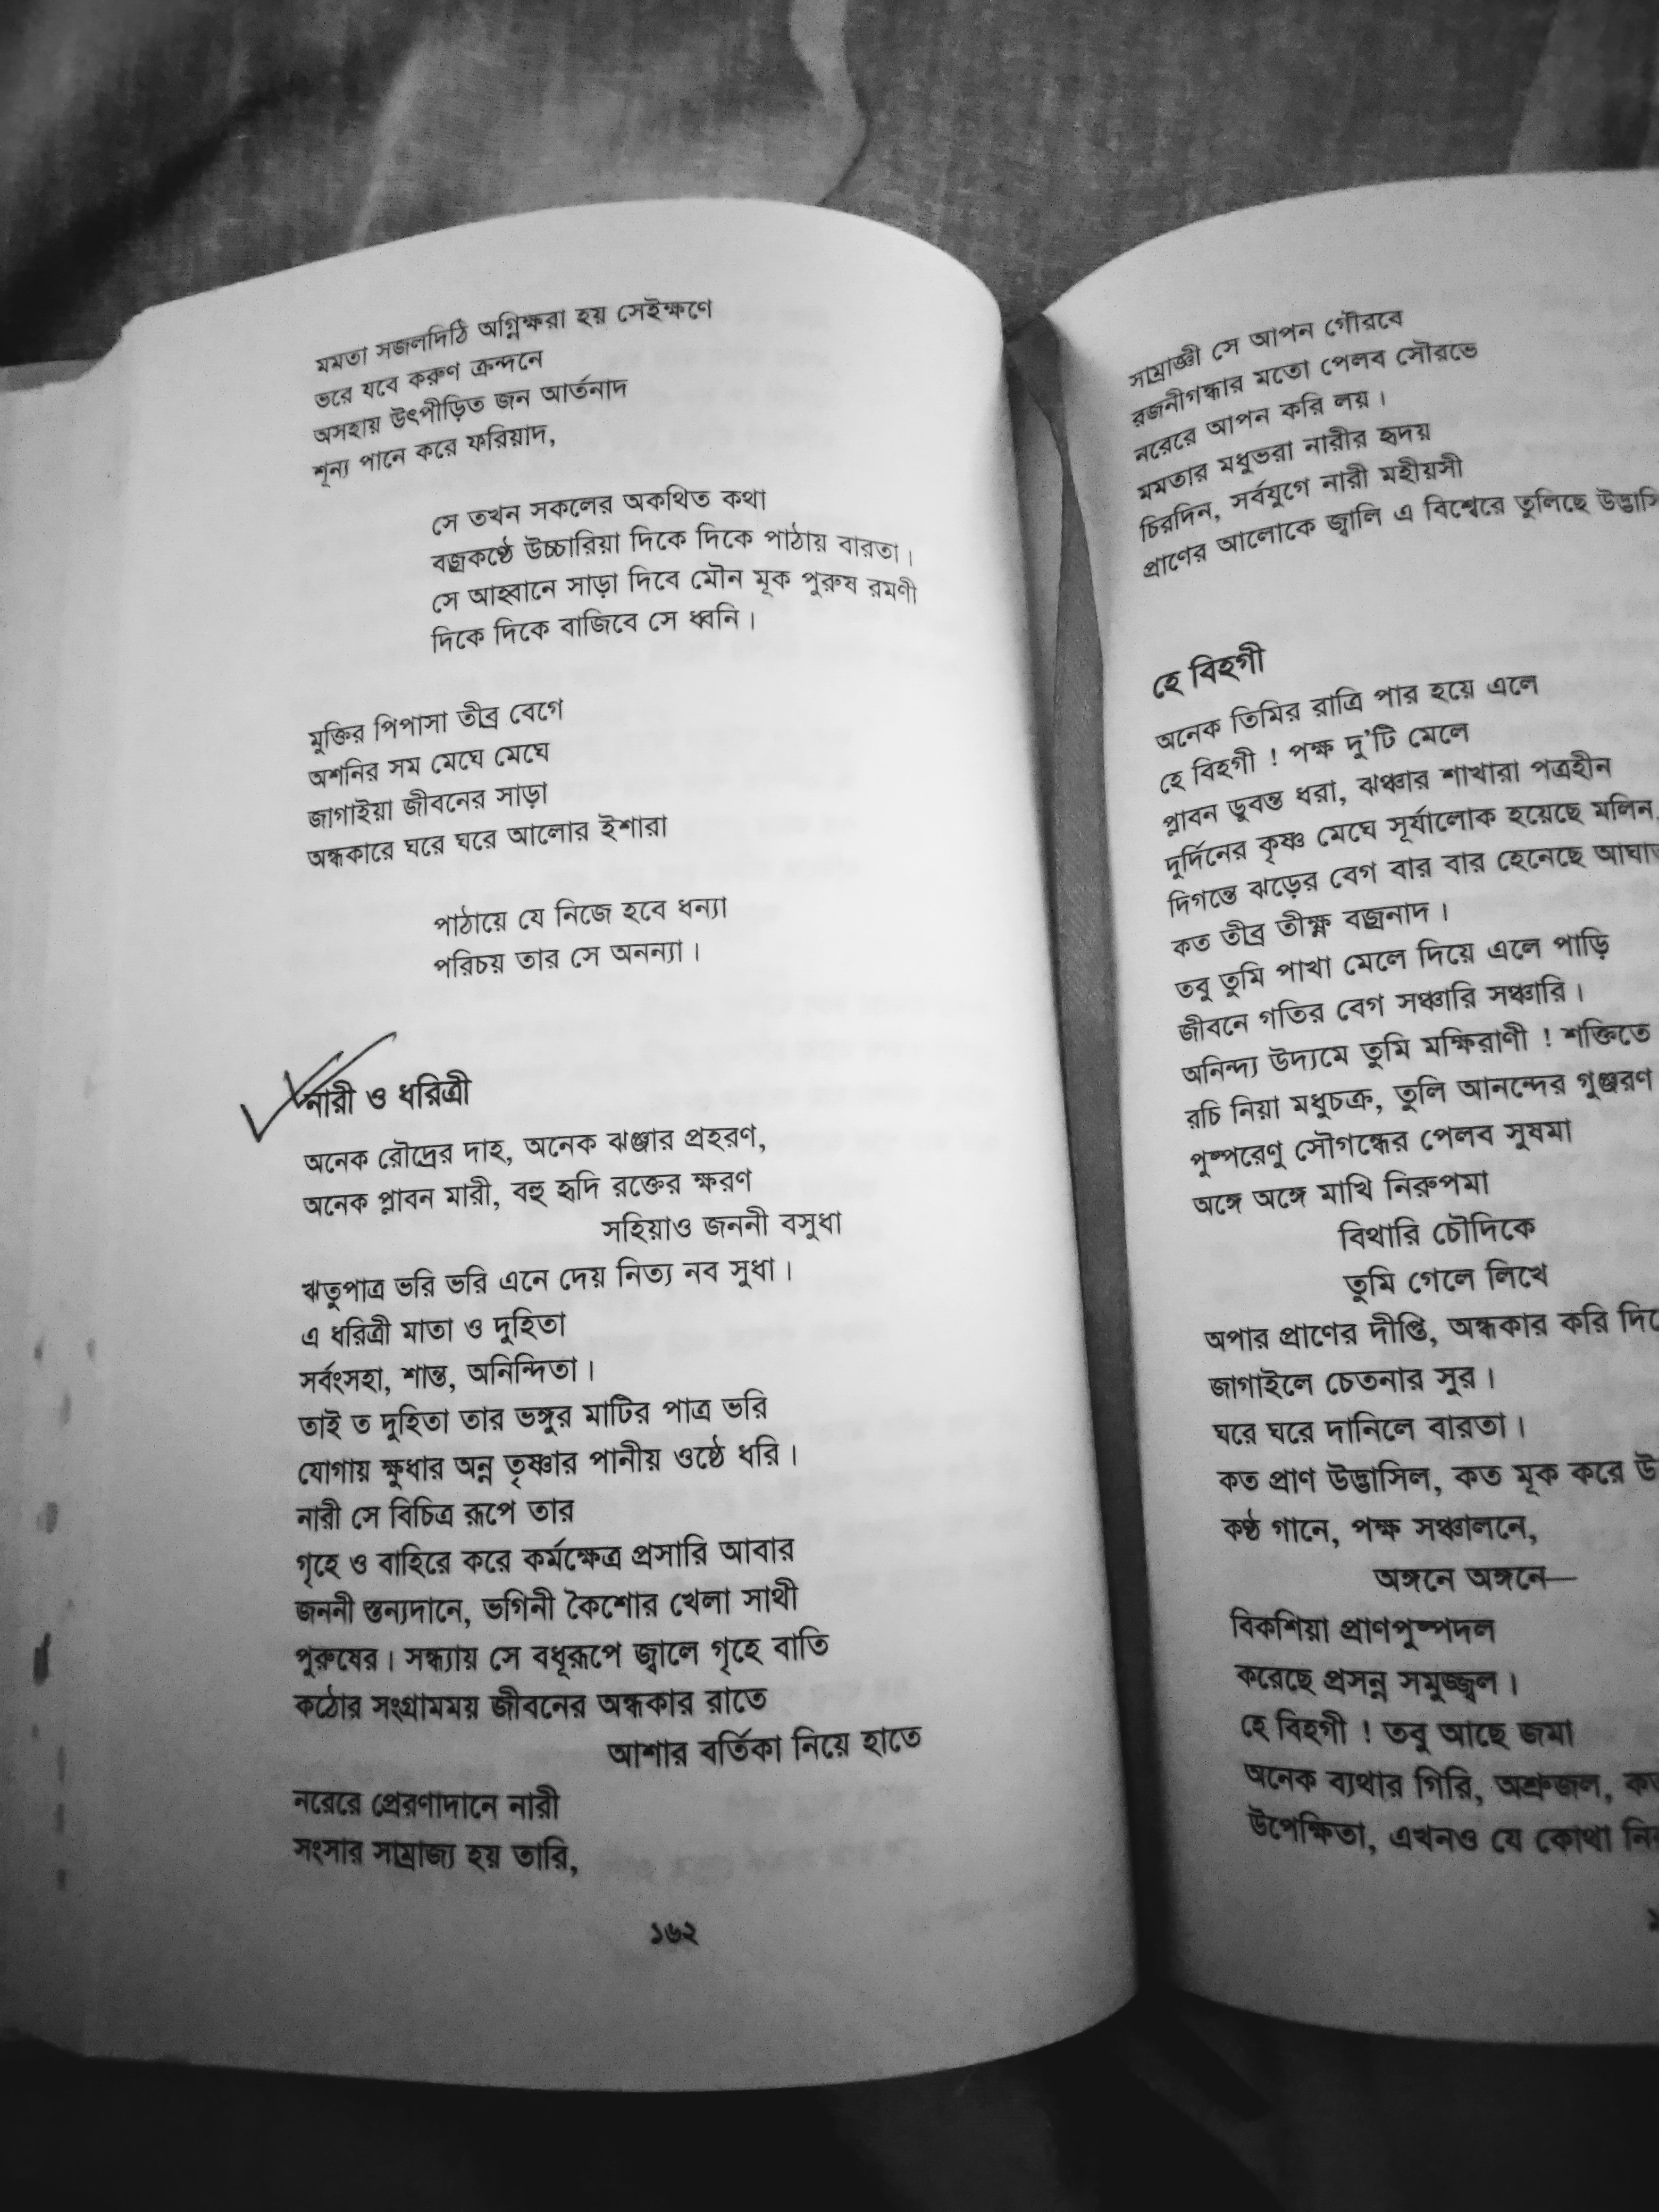 মমতা সজলদিঠি অগ্নিক্ষরা হয় সেইক্ষণে
ভরে যবে করুণ ক্রন্দনে
অসহায় উৎপীড়িত জন আর্তনাদ
শূন্য পানে করে ফরিয়াদ,
সে তখন সকলের অকথিত কথা
বজ্রকণ্ঠে উচ্চারিয়া দিকে দিকে পাঠায় বারতা।
সে আহ্বানে সাড়া দিবে মৌন মূক পুরুষ রমণী
দিকে দিকে বাজিবে সে ধ্বনি।
মুক্তির পিপাসা তীব্র বেগে
অশনির সম মেঘে মেঘে
জাগাইয়া জীবনের সাড়া
অন্ধকারে ঘরে ঘরে আলোর ইশারা
পাঠায়ে যে নিজে হবে ধন্যা
পরিচয় তার সে অনন্যা।
নারী ও ধরিত্রী
অনেক রৌদ্রের দাহ, অনেক ঝঞ্ঝার প্রহরণ,
অনেক প্লাবন মারী, বহু হৃদি রক্তের ক্ষরণ
সহিয়াও জননী বসুধা
ঋতুপাত্র ভরি ভরি এনে দেয় নিত্য নব সুধা।
এ ধরিত্রী মাতা ও দুহিতা
সর্বংসহা, শান্ত, অনিন্দিতা।
তাই ত দুহিতা তার ভঙ্গুর মাটির পাত্র ভরি
যোগায় ক্ষুধার অন্ন তৃষ্ণার পানীয় ওষ্ঠে ধরি।
নারী সে বিচিত্র রূপে তার
গৃহে ও বাহিরে করে কর্মক্ষেত্র প্রসারি আবার
জননী স্তন্যদানে, ভগিনী কৈশোর খেলা সাথী
পুরুষের। সন্ধ্যায় সে বধূরূপে জ্বালে গৃহে বাতি
কঠোর সংগ্রামময় জীবনের অন্ধকার রাতে
আশার বর্তিকা নিয়ে হাতে
নরেরে প্রেরণাদানে নারী
সংসার সাম্রাজ্য হয় তারি,
১৬২
সাম্রাজ্ঞী সে আপন গৌরবে
রজনীগন্ধার মতো পেলব সৌরভে
নরেরে আপন করি লয়।
মমতার মধুভরা নারীর হৃদয়
চিরদিন, সর্বযুগে নারী মহীয়সী
প্রাণের আলোকে জ্বালি এ বিশ্বেরে তুলিছে
হে বিহগী
অনেক তিমির রাত্রি পার হয়ে এলে
হে বিহগী ! পক্ষ দু'টি মেলে
প্লাবন ডুবন্ত ধরা, ঝঞ্ঝার শাখারা পত্রহীন
দুর্দিনের কৃষ্ণ মেঘে সূর্যালোক হয়েছে মলিন
দিগন্তে ঝড়ের বেগ বার বার হেনেছে
কত তীব্র তীক্ষ্ণ বজ্রনাদ।
তবু তুমি পাখা মেলে দিয়ে এলে পাড়ি
জীবনে গতির বেগ সঞ্চারি সঞ্চারি।
অনিন্দ্য উদ্যমে তুমি মক্ষিরাণী ! শক্তিতে
রচি নিয়া মধুচক্র, তুলি আনন্দের গুঞ্জরণ
পুষ্পরেণু সৌগন্ধের পেলব সুষমা
অঙ্গে অঙ্গে মাখি নিরুপমা
বিথারি চৌদিকে
তুমি গেলে লিখে
অপার প্রাণের দীপ্তি, অন্ধকার করি
জাগাইলে চেতনার সুর।
ঘরে ঘরে দানিলে বারতা।
কত প্রাণ উদ্ভাসিল, কত মূক করে
কণ্ঠ গানে, পক্ষ সঞ্চালনে,
অঙ্গনে অঙ্গনে—
বিকশিয়া প্রাণপুষ্পদল
করেছে প্রসন্ন সমুজ্জ্বল।
হে বিহগী ! তবু আছে জমা
অনেক ব্যথার গিরি, অশ্রুজল,
উপেক্ষিতা, এখনও যে কোথা